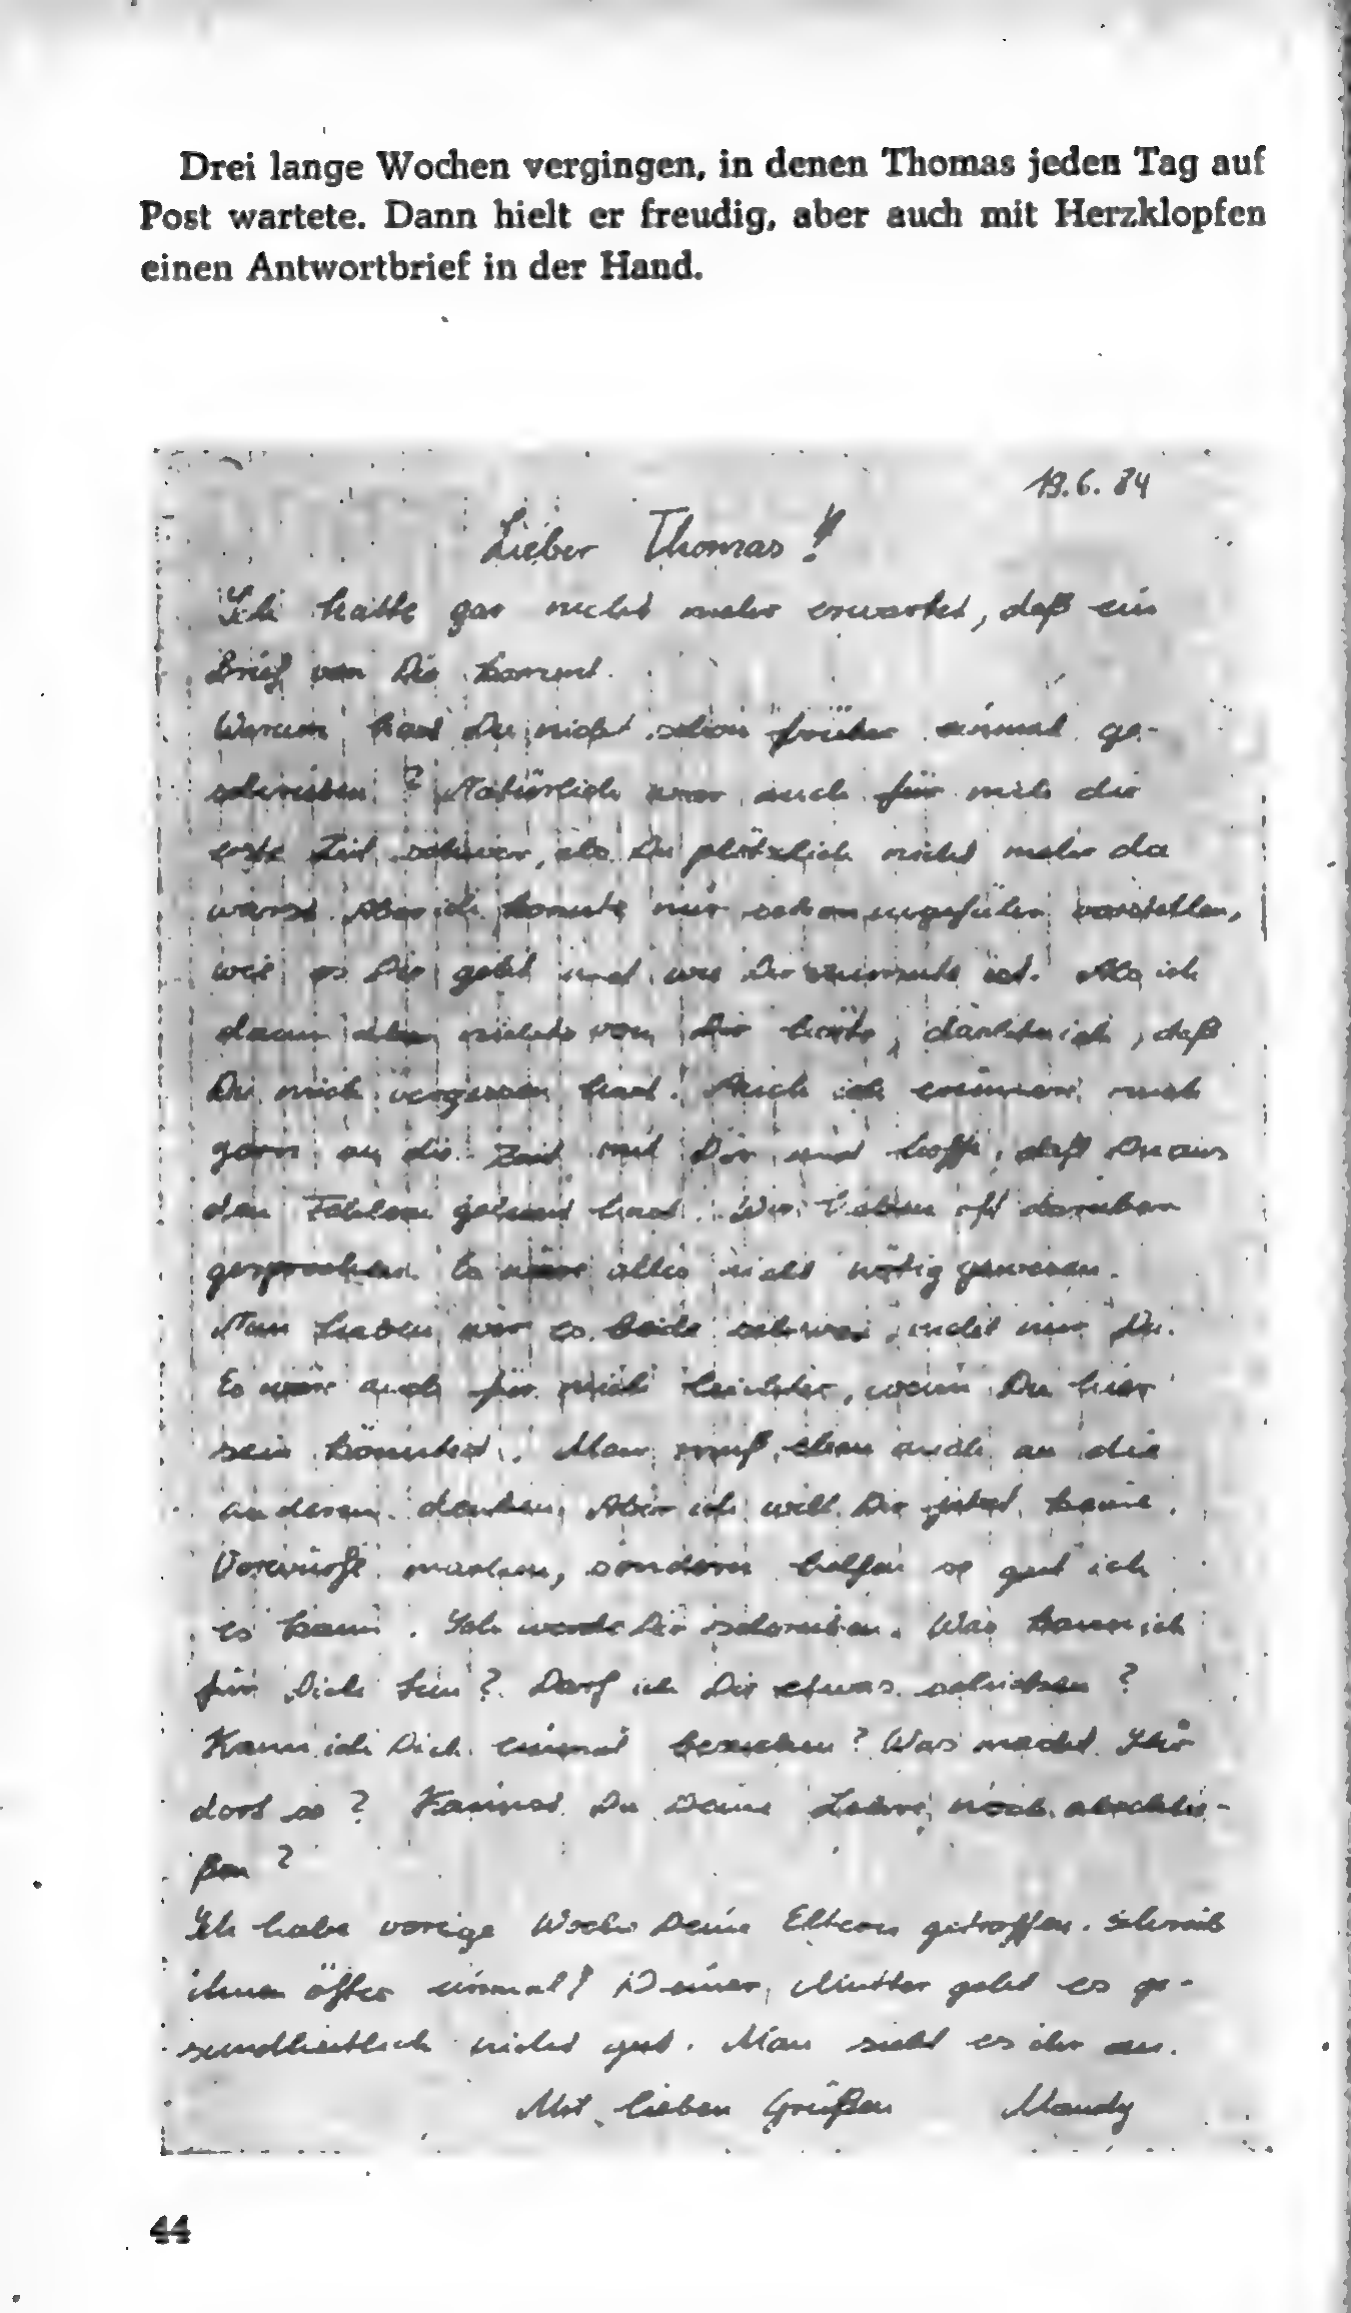 Drei lange Wochen vergingen, in denen Thomas jeden Tag auf
Post wartete. Dann hielt er freudig, aber auch mit Herzklopfen
einen Antwortbrief in der Hand.
19.6.84
Lieber Thomas!
Ich hatte gar nicht mehr erwartet, daß ein
Brief von Dir kommt.
Warum hast Du nicht schon früher einmal ge-
schrieben? Natürlich war auch für mich die
erste Zeit schwer, als Du plötzlich nicht mehr da
warst. Aber ich konnte mir schon ungefähr vorstellen,
wie es Dir geht und wie Dir zumute ist. Als ich
dann aber nichts von Dir hörte, dachte ich, daß
Du mich vergessen hast. Auch ich erinnere mich
gern an die Zeit mit Dir und hoffe, daß Du aus
den Fehlern gelernt hast. Wir haben oft darüber
gesprochen. Es wäre alles nicht nötig gewesen.
Nun haben wir es beide schwer, nicht nur Du.
Es wär auch für mich leichter, wenn Du hier
sein könntest. Man muß eben auch an die
anderen denken. Aber ich will Dir jetzt keine
Vorwürfe machen, sondern helfen so gut ich
es kann. Ich werde Dir schreiben. Was kann ich
für Dich tun? Darf ich Dir etwas schicken?
Kann ich Dich einmal besuchen? Was macht Ihr
dort so? Kannst Du Deine Lehre noch abschlie-
ßen?
Ich habe vorige Woche Deine Eltern getroffen. Schreib
ihnen öfter einmal! Deiner Mutter geht es ge-
sundheitlich nicht gut. Man sieht es ihr an.
Mit lieben Grüßen Mandy
44